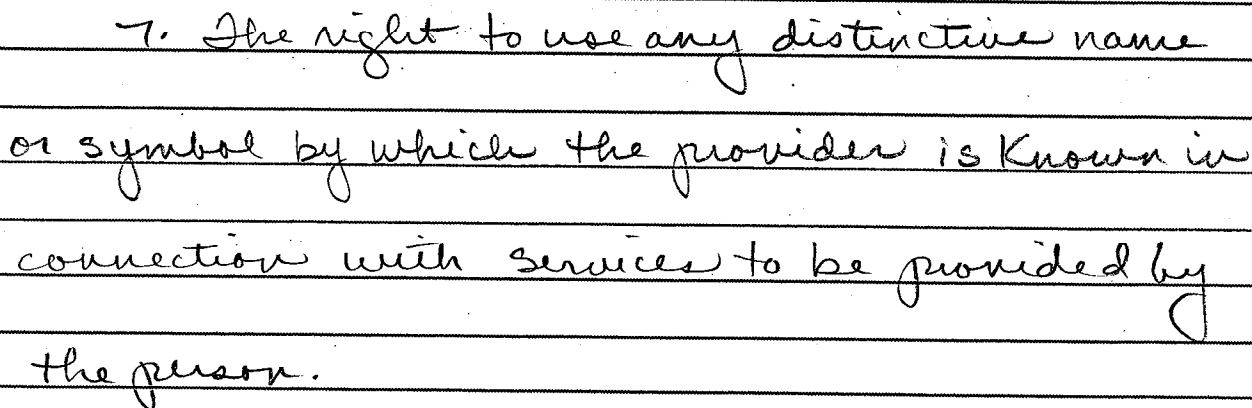 7. The right to use any distinctive name
or symbol by which the provider is Known in
connection with services to be provided by
the person.